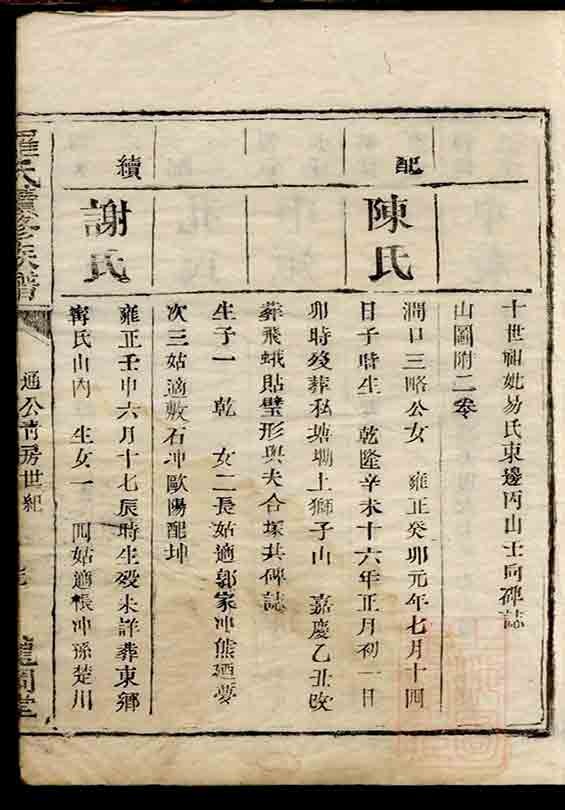 十世祖妣易氏東邊丙山壬向碑誌
山圖附二卷
配
陳氏
澗口三略公女 雍正癸卯元年七月十四
日子時生 乾隆辛未十六年正月初一日
卯時歿葬私塘坳上獅子山 嘉慶乙丑改
葬飛蛾貼壁形與夫合塚共碑誌
生子一 乾 女二長姑適郭家冲熊廼夢
次三姑適敷石冲歐陽配坤
續
謝氏
雍正壬申六月十七辰時生歿未詳葬東鄉
甯氏山內 生女一 四姑適長冲孫楚川
羅氏續修族譜
通公青房世紀